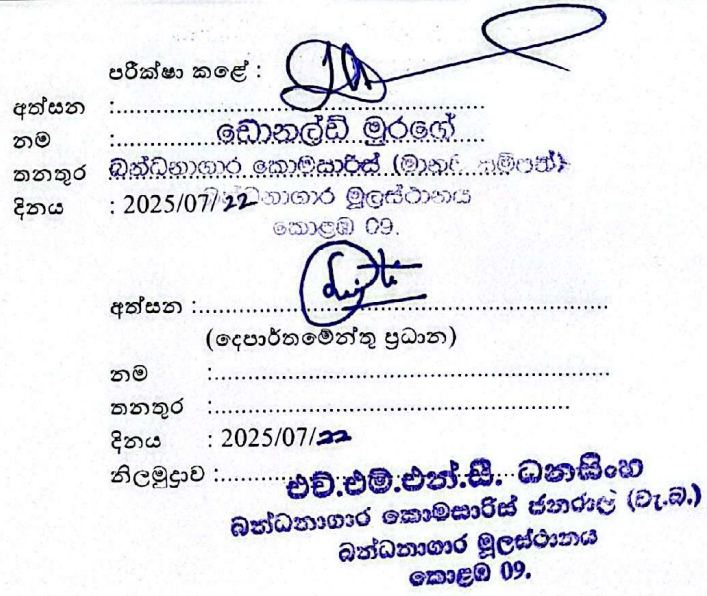 පරීක්ෂා කළේ :
අත්සන :
නම : ඩොනල්ඩ් මුරගේ
තනතුර බන්ධනාගාර කොමසාරිස් (මානව සම්පත්)
දිනය : 2025/07/22 බන්ධනාගාර මූලස්ථානය
කොළඹ 09.
අත්සන :
(දෙපාර්තමේන්තු ප්‍රධාන)
නම :
තනතුර :
දිනය : 2025/07/22
නිලමුද්‍රාව : එච්.එම්.එන්.සී. ධනසිංහ
බන්ධනාගාර කොමසාරිස් ජනරාල් (වැ.බ.)
බන්ධනාගාර මූලස්ථානය
කොළඹ 09.